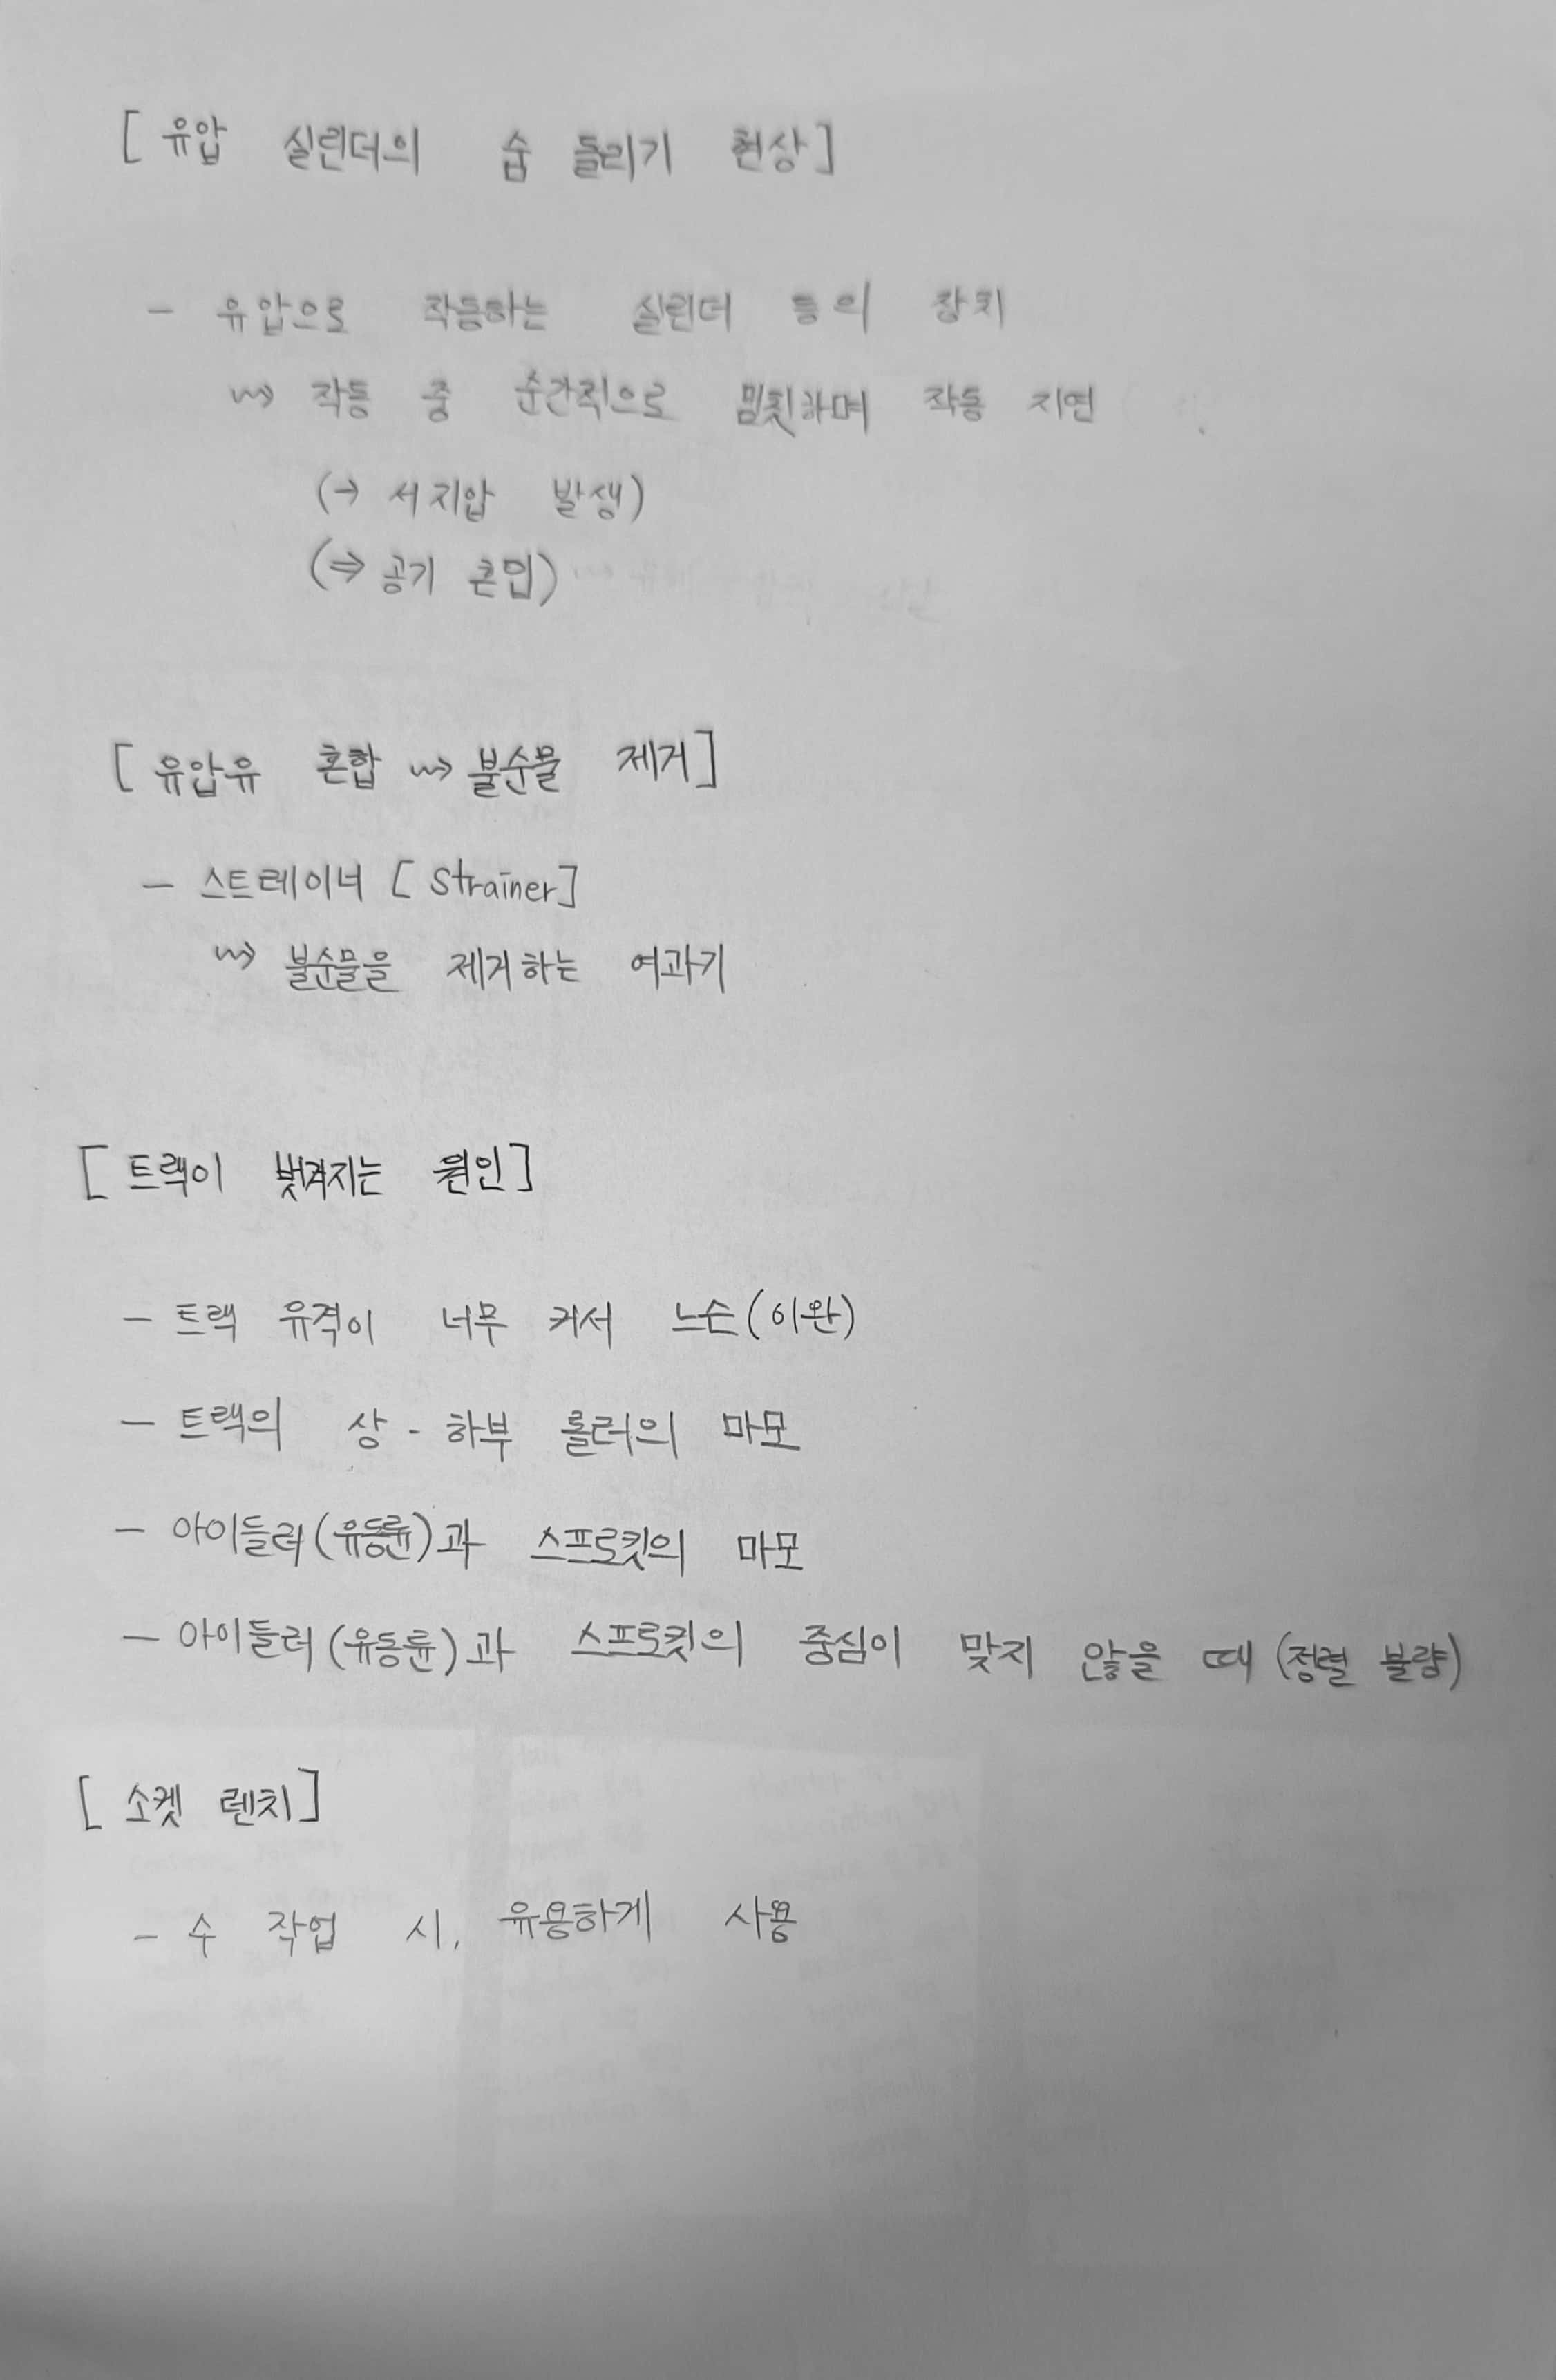 [유압 실린더의 숨 돌리기 현상]
- 유압으로 작동하는 실린더 등의 장치
⇝ 작동 중 순간적으로 멈칫하며 작동 지연
(→ 서지압 발생)
(⇒ 공기 혼입)
[유압유 혼합 ⇝ 불순물 제거]
- 스트레이너 [strainer]
⇝ 불순물을 제거하는 여과기
[트랙이 벗겨지는 원인]
- 트랙 유격이 너무 커서 느슨(이완)
- 트랙의 상-하부 롤러의 마모
- 아이들러(유동륜)과 스프로킷의 마모
- 아이들러(유동륜)과 스프로킷의 중심이 맞지 않을 때 (정렬 불량)
[소켓 렌치]
- 수 작업 시, 유용하게 사용